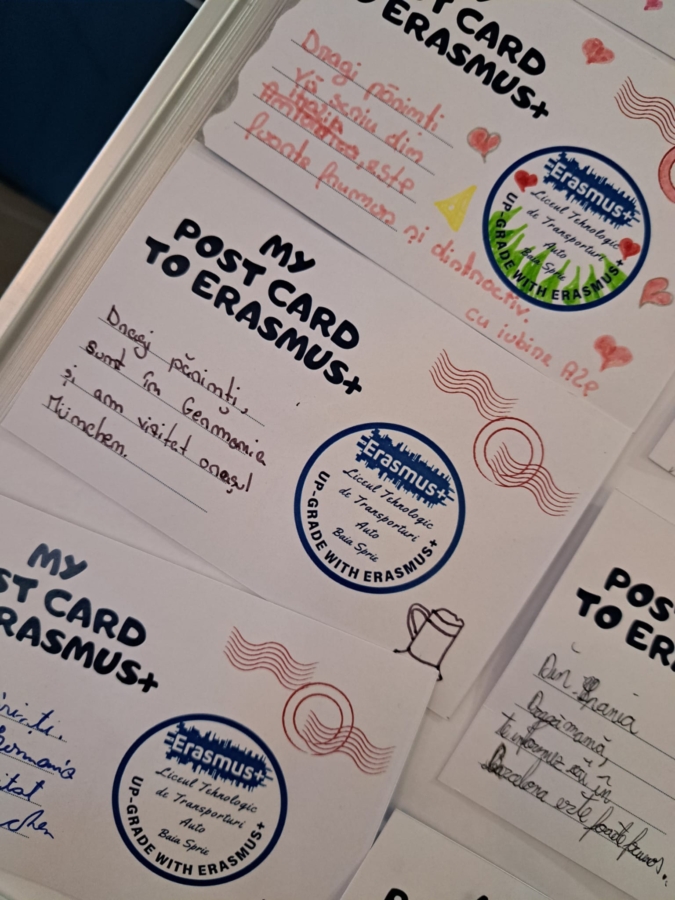 MY
POST CARD
TO ERASMUS+
Dragi părinți
Vă scriu din
Italia
este
foarte frumos și distractiv.
cu iubire
Erasmus+
Liceul Tehnologic
de Transporturi
Auto
Baia Sprie
UP-GRADE WITH ERASMUS+
MY
POST CARD
TO ERASMUS+
Dragi părinți,
sunt în Germania
și am vizitat orașul
München.
Erasmus+
Liceul Tehnologic
de Transporturi
Auto
Baia Sprie
UP-GRADE WITH ERASMUS+
MY
ST CARD
ERASMUS+
Erasmus+
Liceul Tehnologic
de Transporturi
Auto
Baia Sprie
UP-GRADE WITH ERASMUS+
POS
TO ER
Din Spania
Dragă mamă,
te informez că în
Barcelona este foarte frumos.